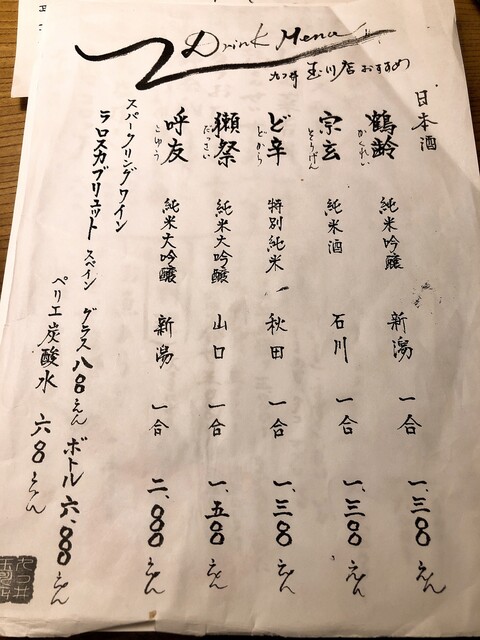 Drink Menu
九つ井 玉川店おすすめ
日本酒
鶴齢 かくれい 純米吟醸 新潟 一合 一、三〇〇えん
宗玄 そうげん 純米酒 石川 一合 一、三〇〇えん
ど辛 どから 特別純米 秋田 一合 一、三〇〇えん
獺祭 だっさい 純米大吟醸 山口 一合 一、五〇〇えん
呼友 こゆう 純米大吟醸 新潟 一合 二、〇〇〇えん
スパークリングワイン
ラロスカブリュット スペイン グラス八〇〇えん ボトル六、〇〇〇えん
ペリエ炭酸水 六〇〇えん